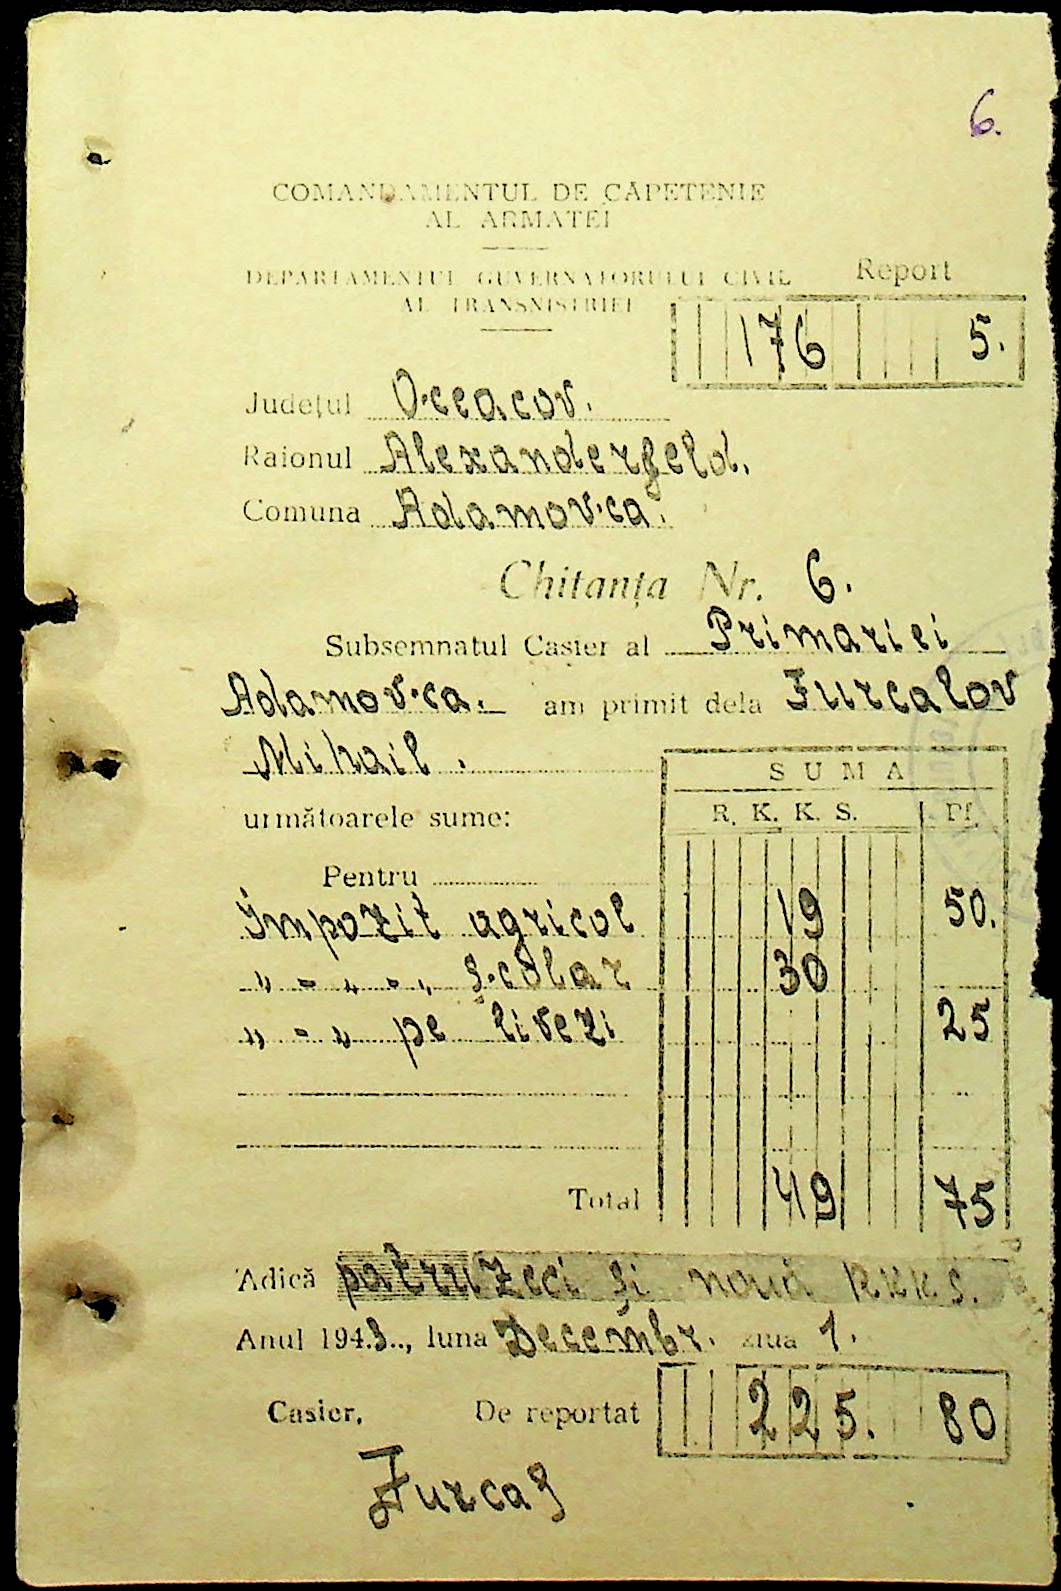 6.
COMANDAMENTUL DE CĂPETENIE
AL ARMATEI
DEPARTAMENTUL GUVERNATORULUI CIVIL
AL TRANSNISTRIEI
Report
176 5.
Județul Oceacov.
Raionul Alexanderfeld.
Comuna Adamovca.
Chitanța Nr. 6.
Subsemnatul Casier al Primariei
Adamovca. am primit dela Furcalov
Mihail.
SUMA
următoarele sume: R. K. K. S. Pf.
Pentru
Impozit agricol 19 50.
" - " - " școlar 30
" - " pe livezi 25
Total 49 75
Adică patruzeci și nouă RKKS.
Anul 1943.., luna Decembr. ziua 1.
Casier, De reportat 225. 80